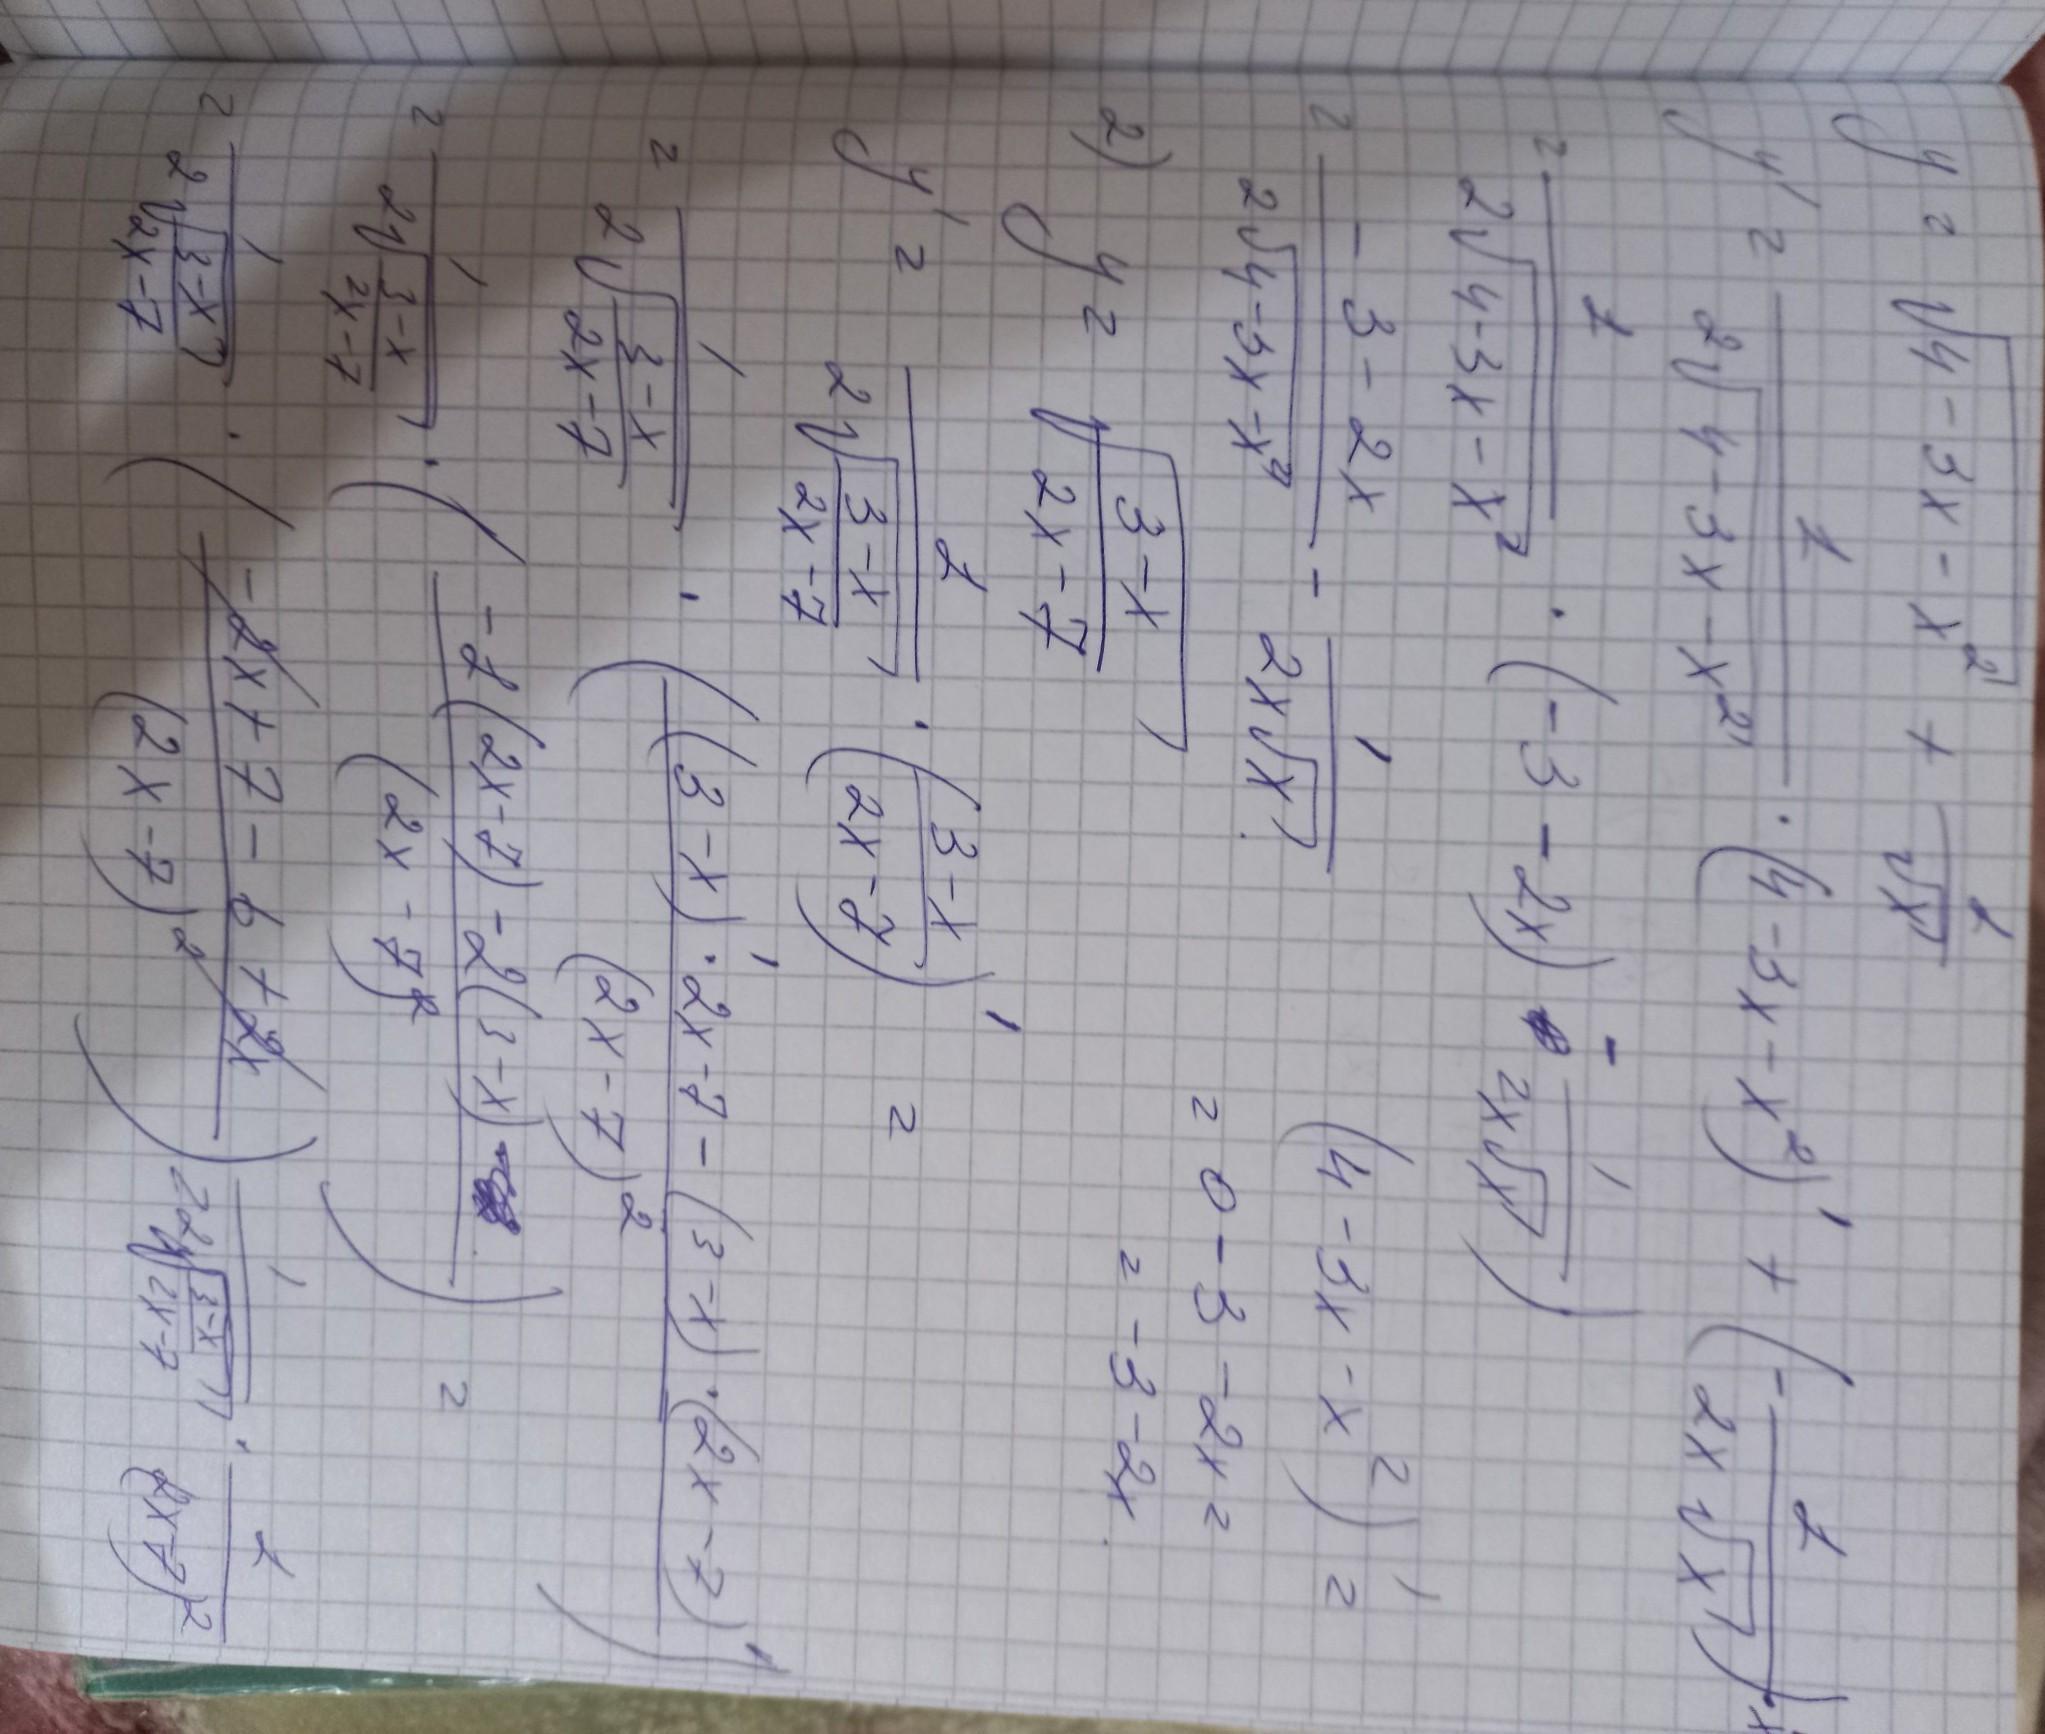 y = √(4 - 3x - x²) + 1/√x
y' = 1/(2√(4 - 3x - x²)) · (4 - 3x - x²)' + (- 1/(2x√x)) · x
= 1/(2√(4 - 3x - x²)) · (-3 - 2x) - 1/(2x√x))
= (-3 - 2x)/(2√(4 - 3x - x²)) - 1/(2x√x).
(4 - 3x - x²)' =
= 0 - 3 - 2x =
= -3 - 2x.
2) y = √((3 - x)/(2x - 7))
y' = 1/(2√((3 - x)/(2x - 7))) · ((3 - x)/(2x - 7))' =
= 1/(2√((3 - x)/(2x - 7))) · (((3 - x)' · 2x - 7 - (3 - x) · (2x - 7)')/(2x - 7)²)
= 1/(2√((3 - x)/(2x - 7))) · ((-1(2x - 7) - 2(3 - x))/(2x - 7)²) =
= 1/(2√((3 - x)/(2x - 7))) · ((-2x + 7 - 6 + 2x)/(2x - 7)²) = 1/(2√((3 - x)/(2x - 7))) · 1/(2x - 7)²